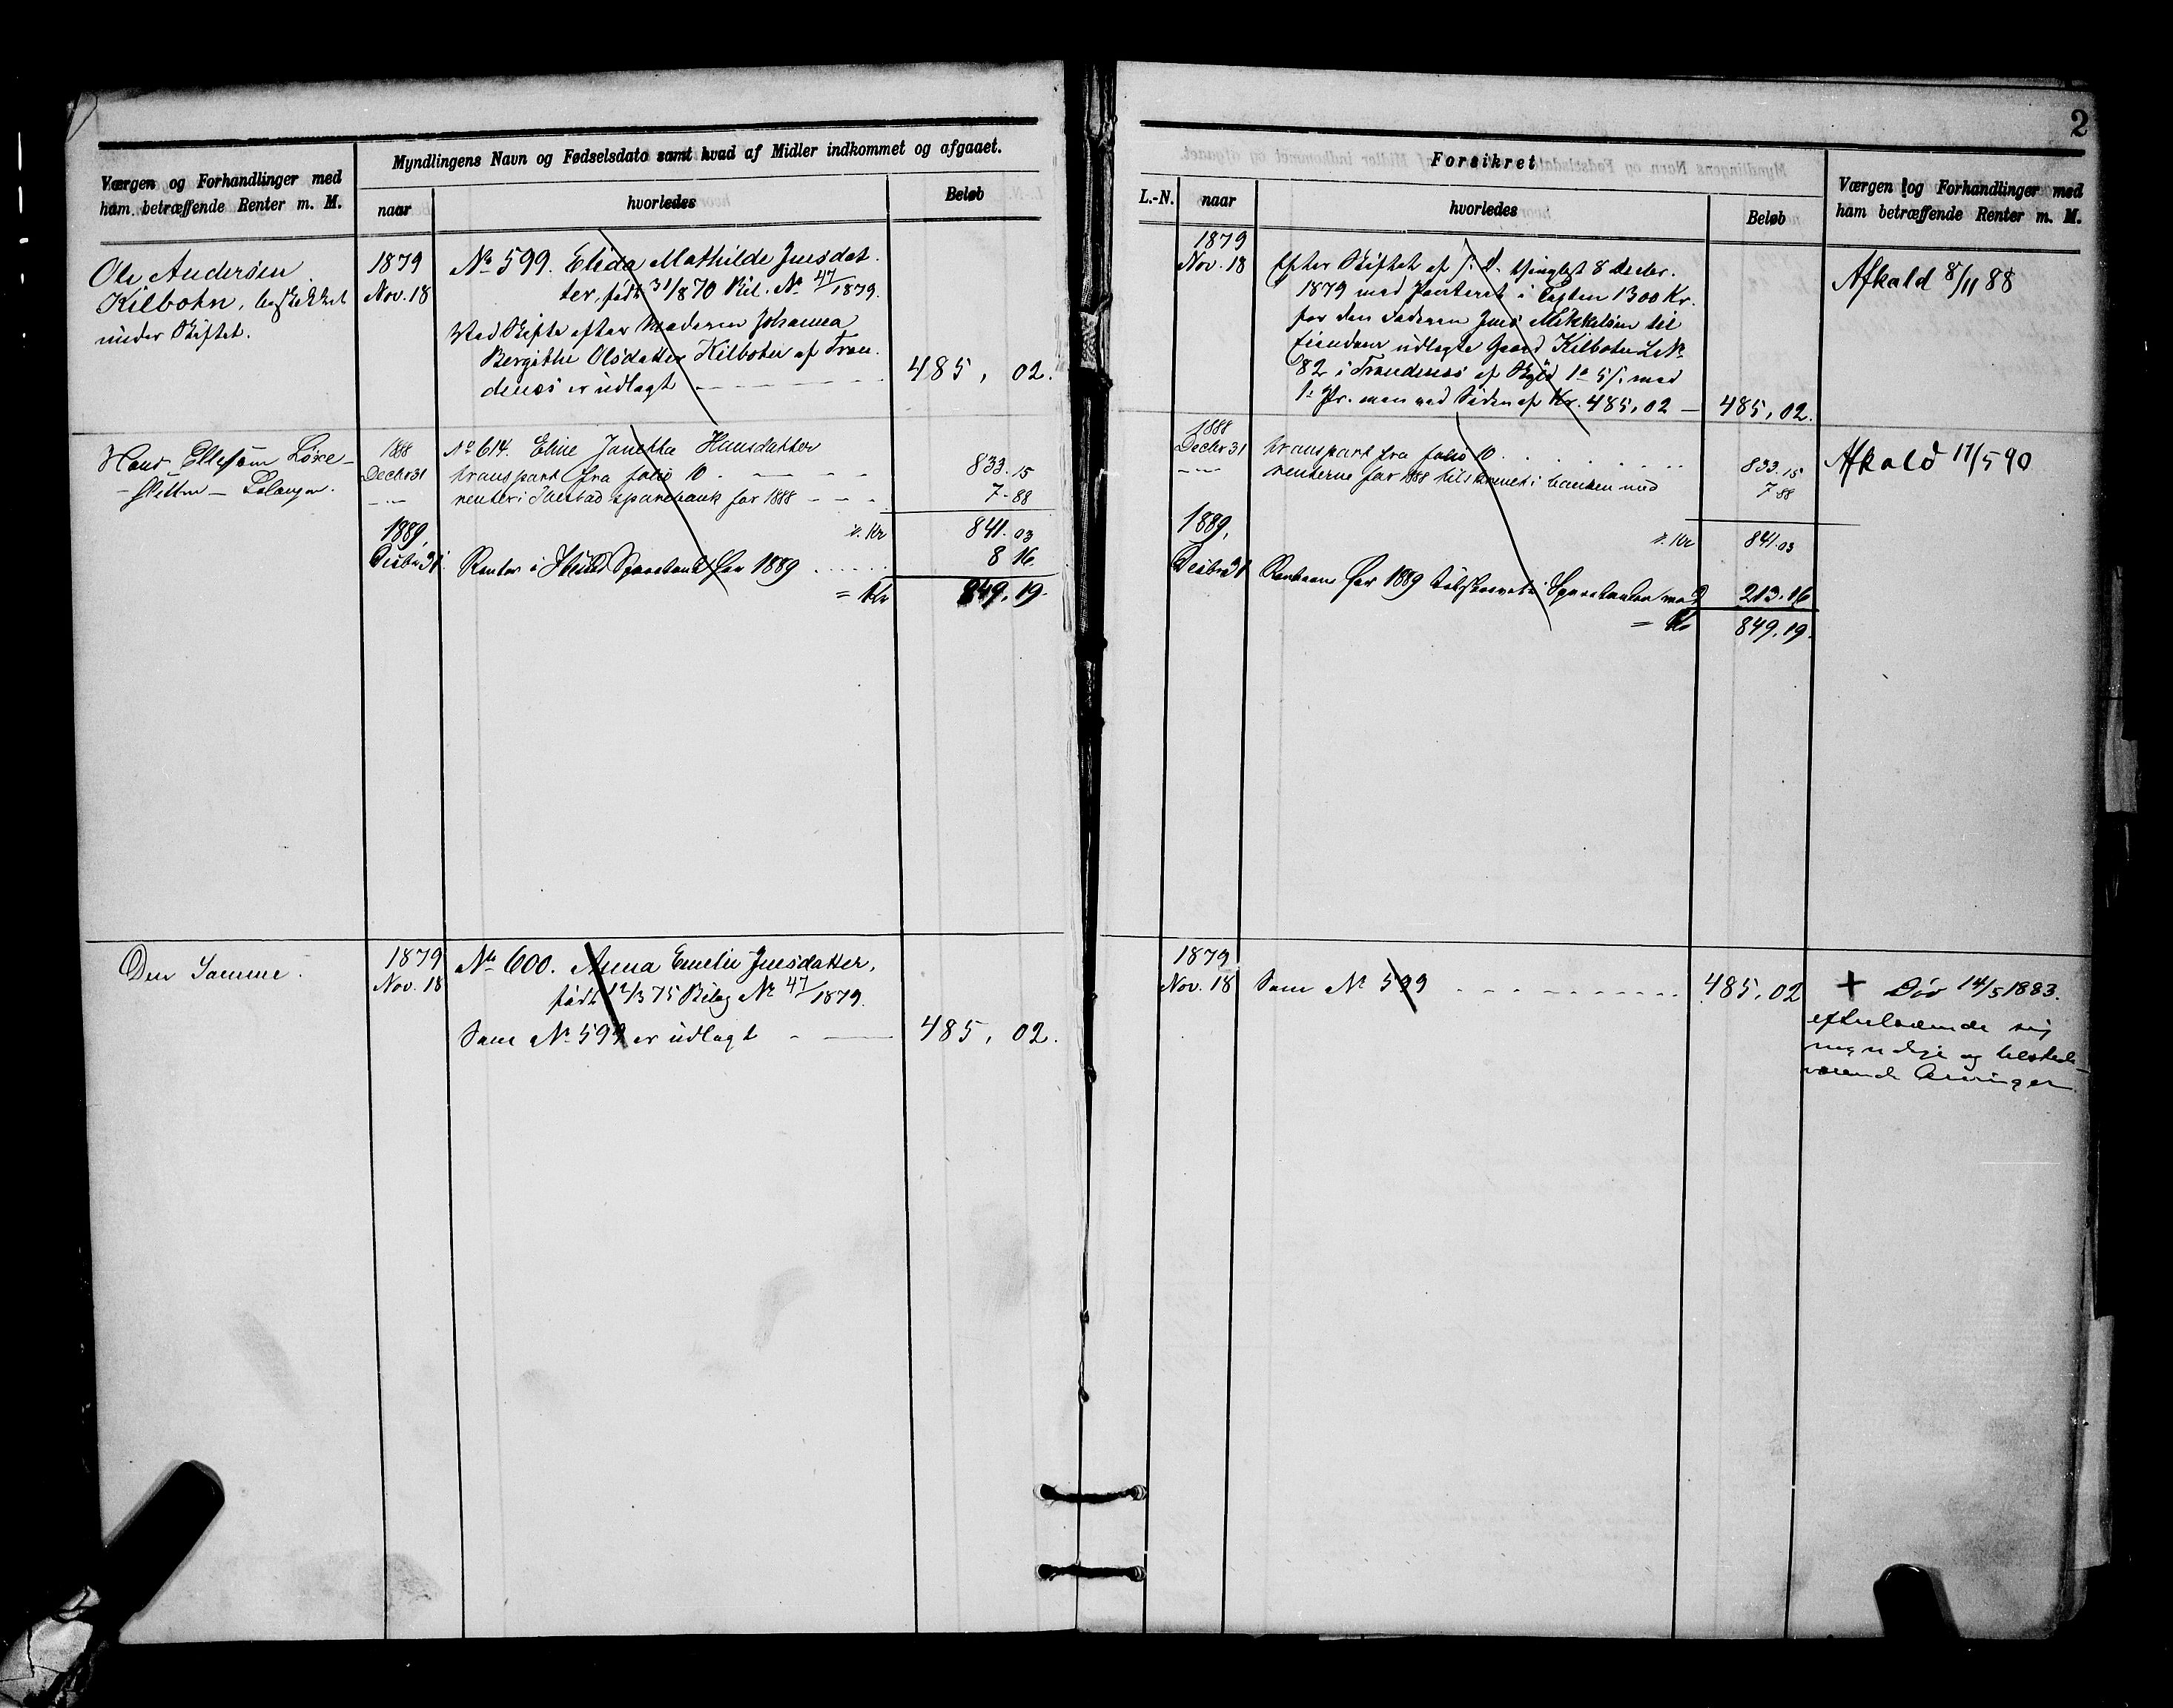 2
Værgen og Forhandlinger med
ham betræffende Renter m. M.
Myndlingens Navn og Fødselsdato samt hvad af Midler indkommet og afgaaet.
naar
hvorledes
Beløb
Ole Andersen
Kilbotn, beskikket
under Skiftet.
1879
Nov. 18
No 599. Elida Mathilde Jensdat
ter, født 31/8 70 Bil. No 47/1879.
Ved Skifte efter Moderen Johanna
Bergithe Olsdatter Kilbotn af Tron
denæs er udlagt
485, 02.
Hans Ellefsen Løxe-
1888
Decbr 31
No 614. Eline Janetha Hansdatter
transport fra folio 10
833.15
renter i Ibestad Sparebank for 1888
7-88
1889,
Kr
841.03
Decbr 31
Renter i Ibestad Sparebank for 1889
8 16
= Kr
849.19.
Den Samme.
1879
Nov. 18
No 600. Anna Emelie Jensdatter,
født 12/3 75 Bilag No 47/1879.
Som No 599 er udlagt
485, 02.
Forsikret
L.-N.
naar
hvorledes
Beløb
Værgen og Forhandlinger med
ham betræffende Renter m. M.
1879
Nov. 18
Efter Skiftet af s. D. thinglyst 8 Decbr.
1879 med Panteret i Taxten 1300 Kr.
for den Faderen Jens Mikkelsen til
Eiendom udlagte Gaard Kilbotn L No
82 i Trondenæs af Skyld 1 5 med
1. Pr. men ved Siden af Kr. 485,02
485,02.
Afkald 8/11 88
1888
Decbr 31
transport fra folio 10
833.15
renterne for 1888 tilskrevet i banken med
7 88
Afkald 17/5 90
1889,
Kr
841.03
Decbr 31
Renterne for 1889 tilskrevet i Sparebanken med
213.16
= Kr
849.19.
1879
Nov. 18
Som No 599
485,02
+ Død 14/5 1883.
efterladende sig
myndige og tilstede-
værende Arvinger